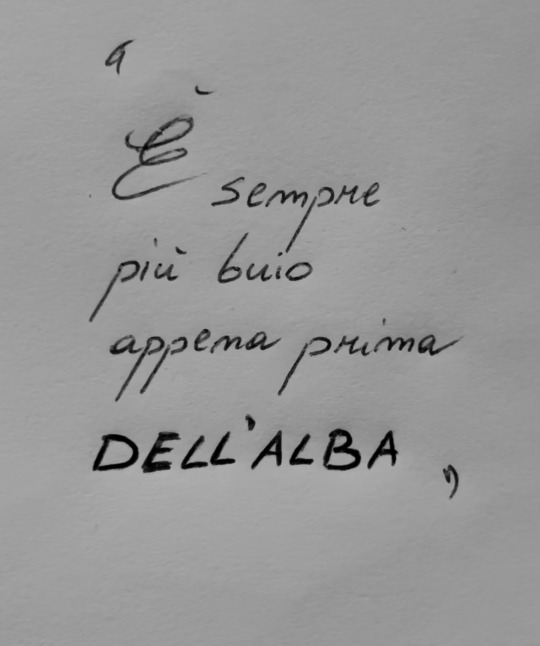 "È sempre
più buio
appena prima
DELL'ALBA"